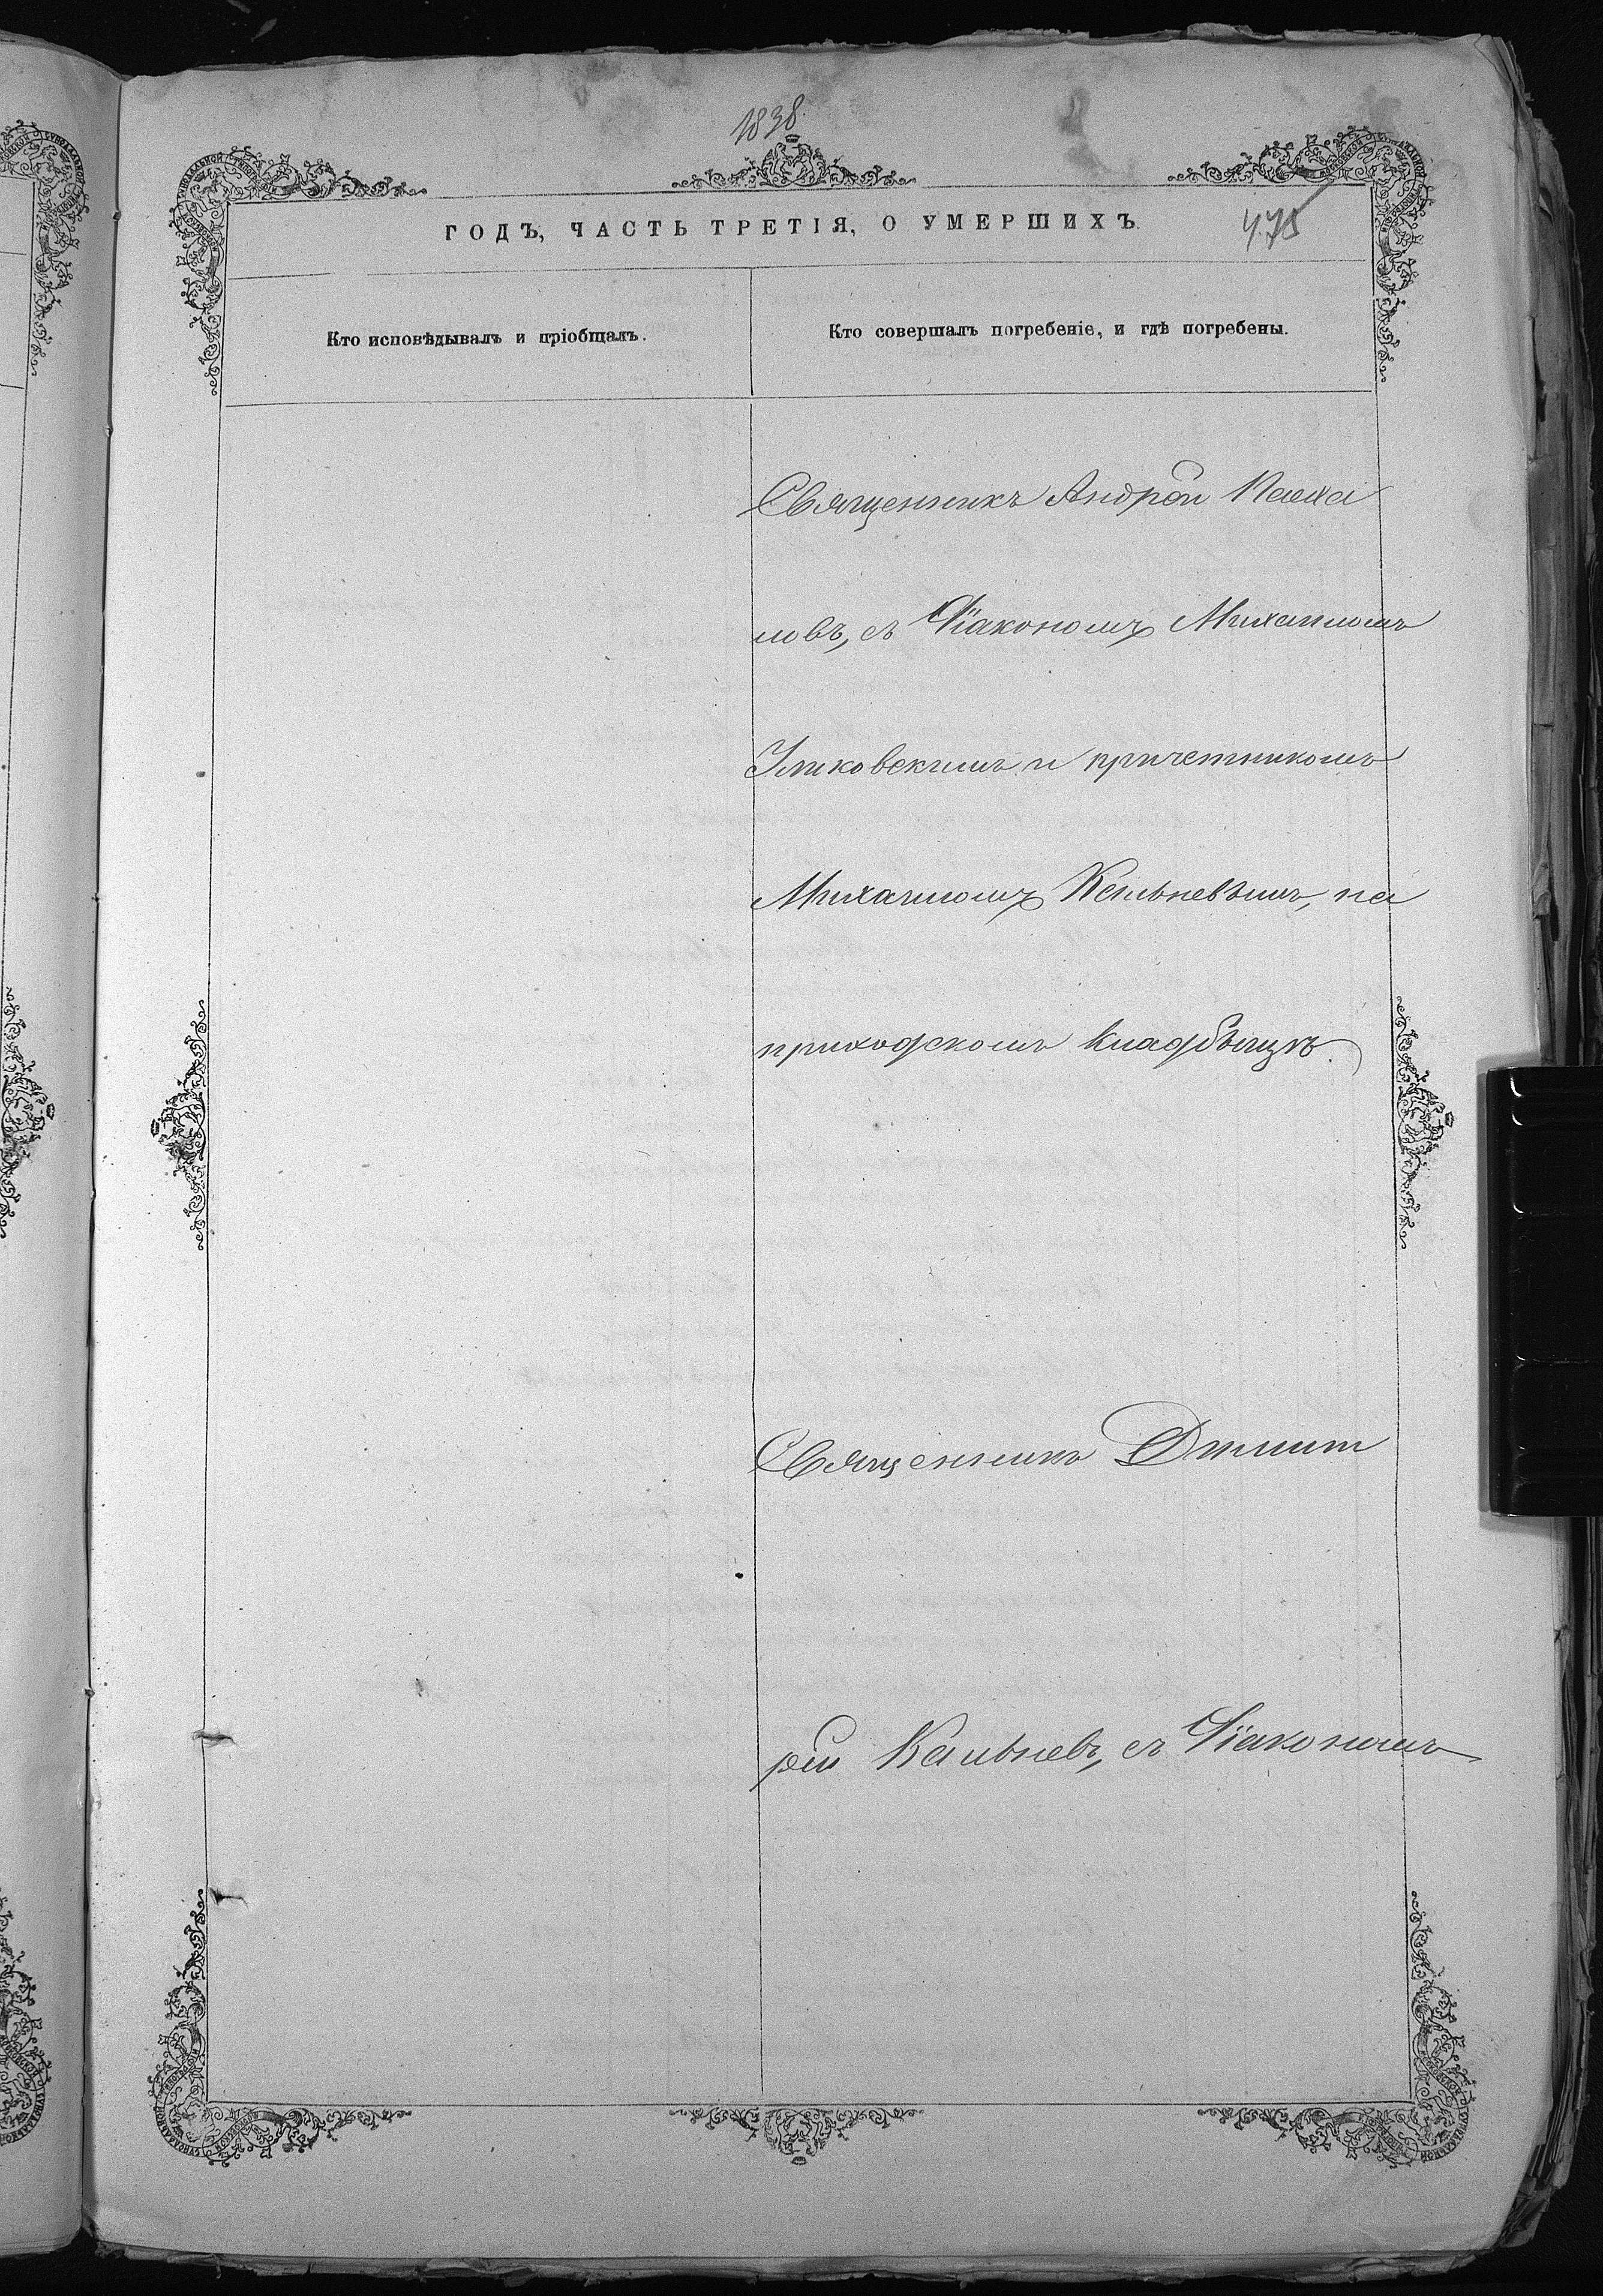 1838.
ГОДЪ, ЧАСТЬ ТРЕТІЯ, О УМЕРШИХЪ.
475
Кто исповѣдывалъ и пріобщалъ.
Кто совершалъ погребеніе, и гдѣ погребены.
Священникъ Андрей Пасха
ловъ, съ Діакономъ Михаиломъ
и причетникомъ
Михаиломъ Кельневымъ, на
приходскомъ кладбищѣ.
Священникъ Димит
рій Кельневъ, съ Діакономъ